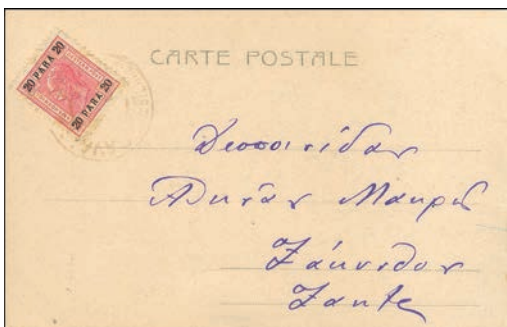 CARTE POSTALE
20 PARA 20
20 PARA 20
Δεσποινίδαν
Μακρῆ
Ζάκυνθον
Zante